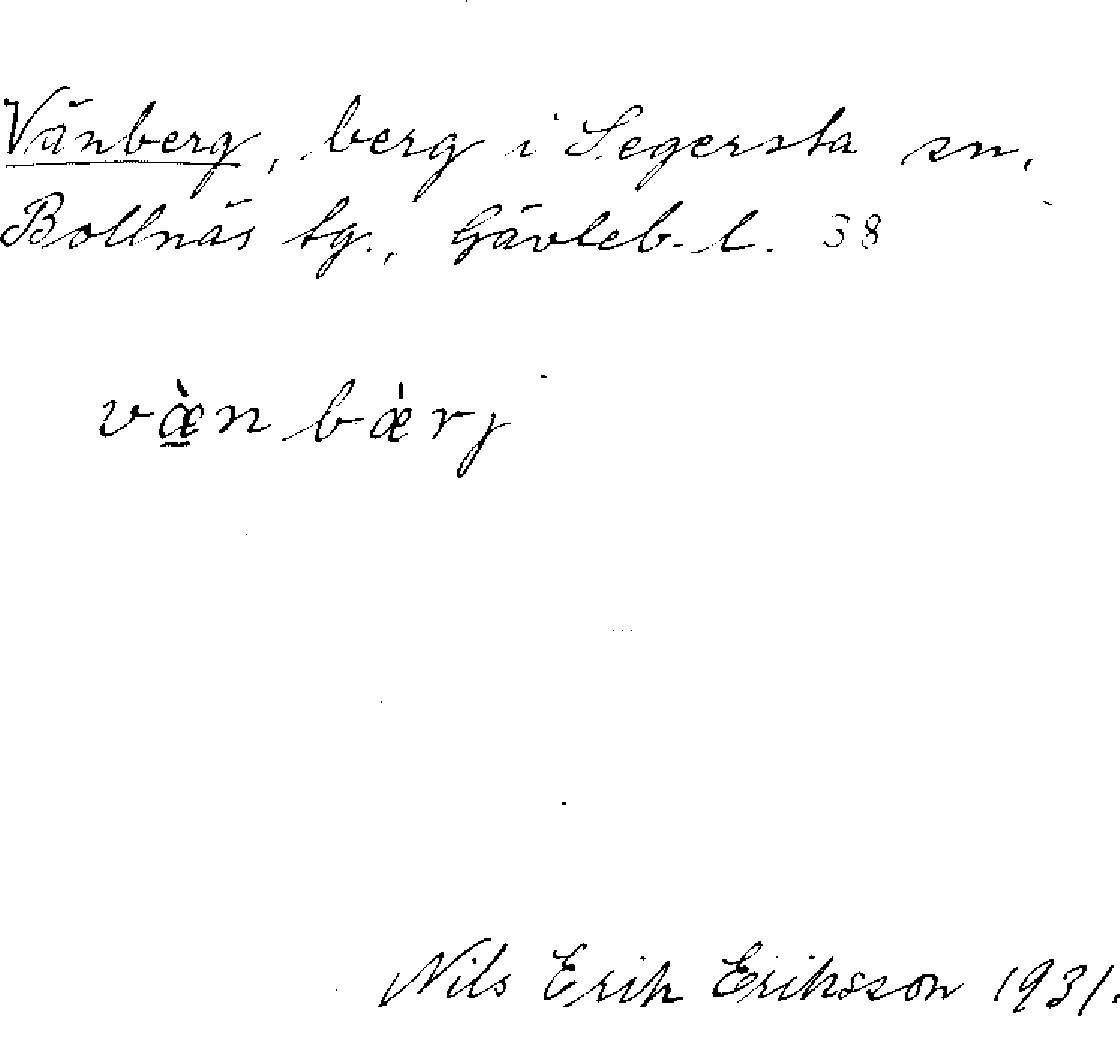 Vänberg, berg i Segersta sn.
Bollnäs tg., Gävleb. l. 38
væ̱̀nbæ̀rj
Nils Erik Eriksson 1931.